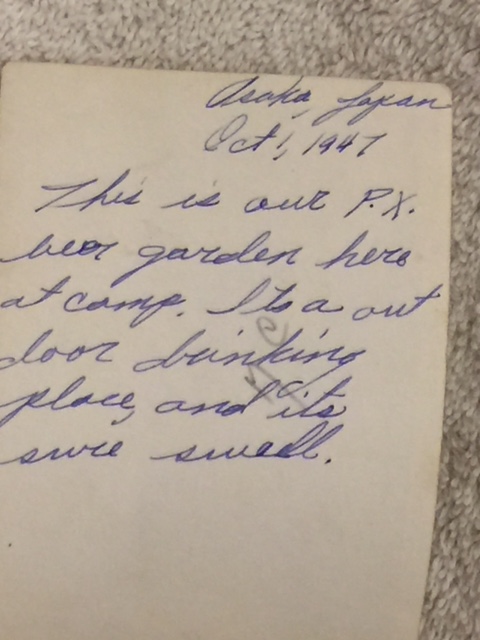 Osaka, Japan
Oct 1, 1947
This is our P.X.
beer garden here
at camp. Its a out
door drinking
place, and its
sure swell.